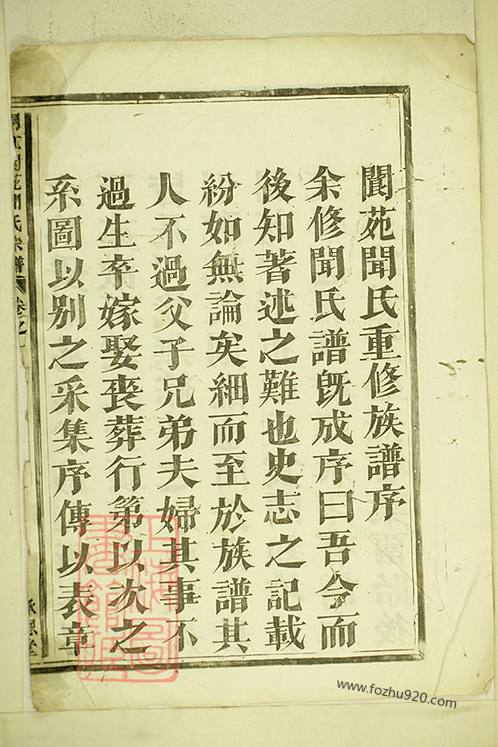 聞苑聞氏重修族譜序
余修聞氏譜旣成序曰吾今而
後知著述之難也史志之記載
紛如無論矣細而至於族譜其
人不過父子兄弟夫婦其事不
過生卒嫁娶喪葬行第以次之
系圖以别之采集序傳以表章
聞氏宗譜 卷之
www.fozhu920.com